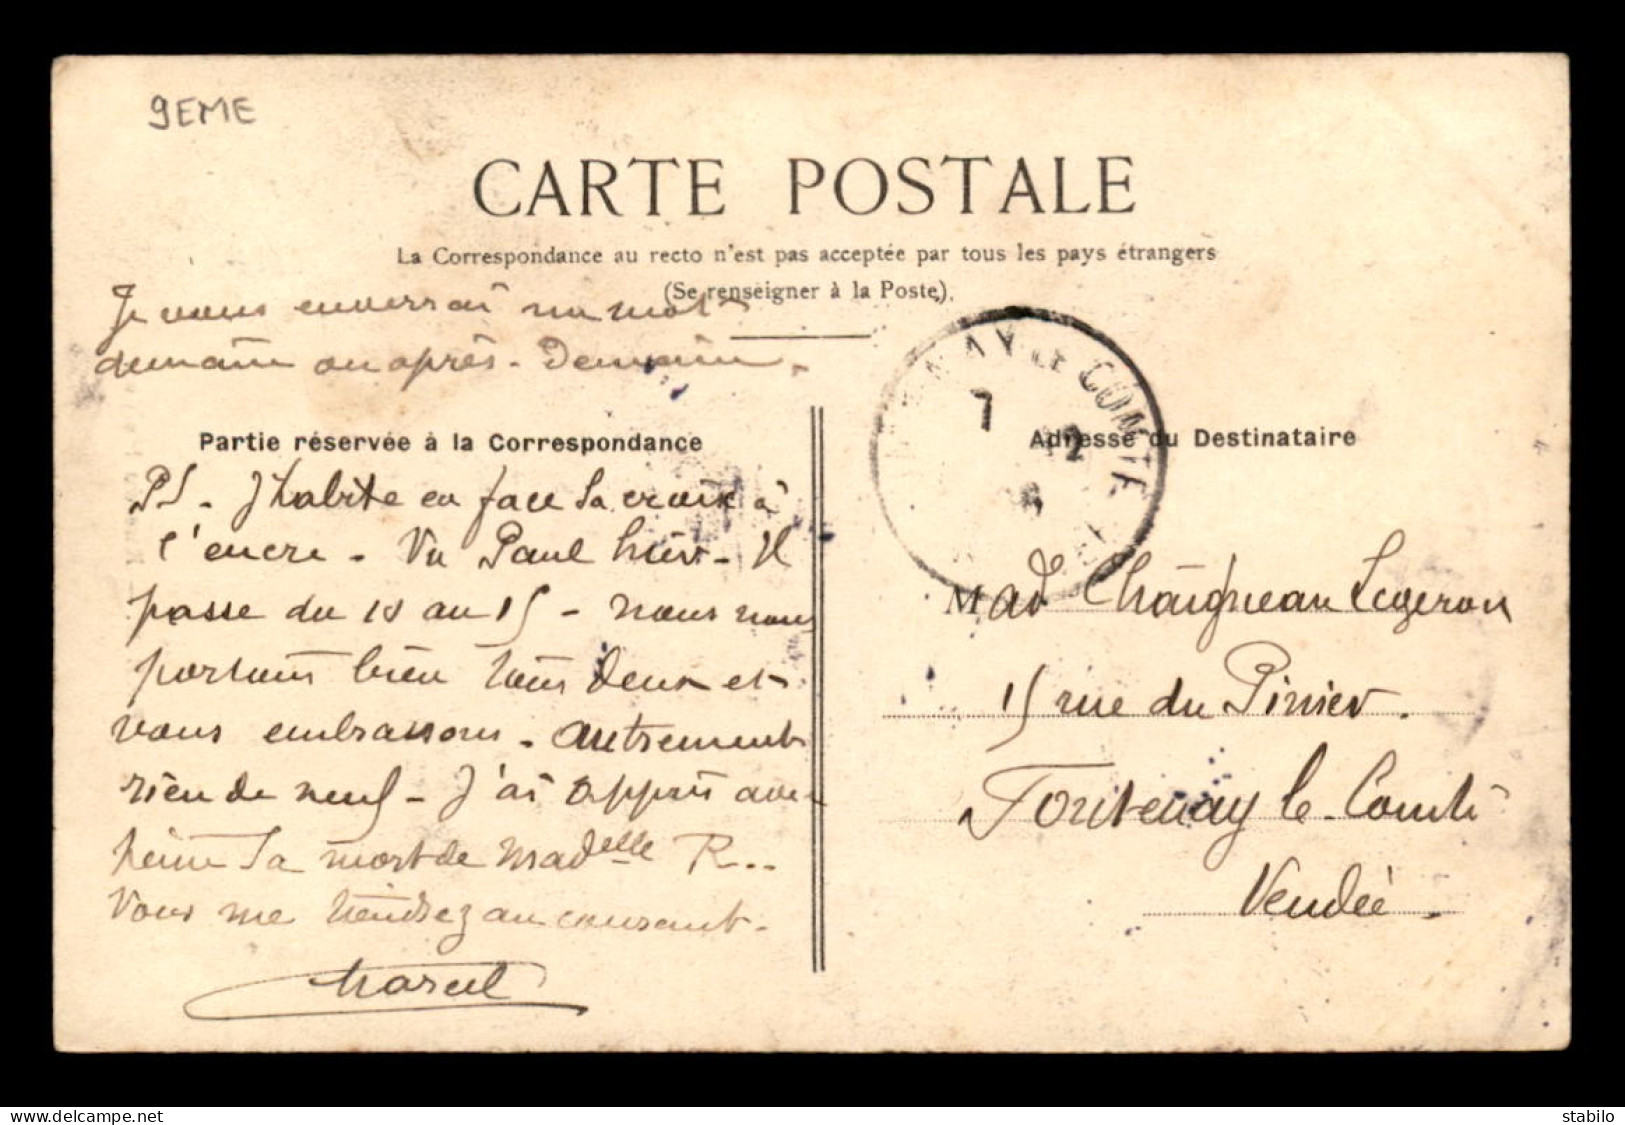 9EME
CARTE POSTALE
La Correspondance au recto n'est pas acceptée par tous les pays étrangers
(Se renseigner à la Poste).
Je vous enverrai un mot
demain ou après-Demain.
Partie réservée à la Correspondance
PS. J'habite en face la croix à
l'encre - Vu Paul hier - Il
passe du 10 au 15 - nous nous
portons bien tous deux et
vous embrassons. Autrement
rien de neuf - J'ai appris avec
peine la mort de Madelle R..
Vous me tiendrez au courant.
Marcel
FONTENAY LE COMTE
7
12
Adresse du Destinataire
Mad Chaigneau Legeron
15 rue du Pinier.
Fontenay le-Comte
Vendée.
delcampe.net
stabilo